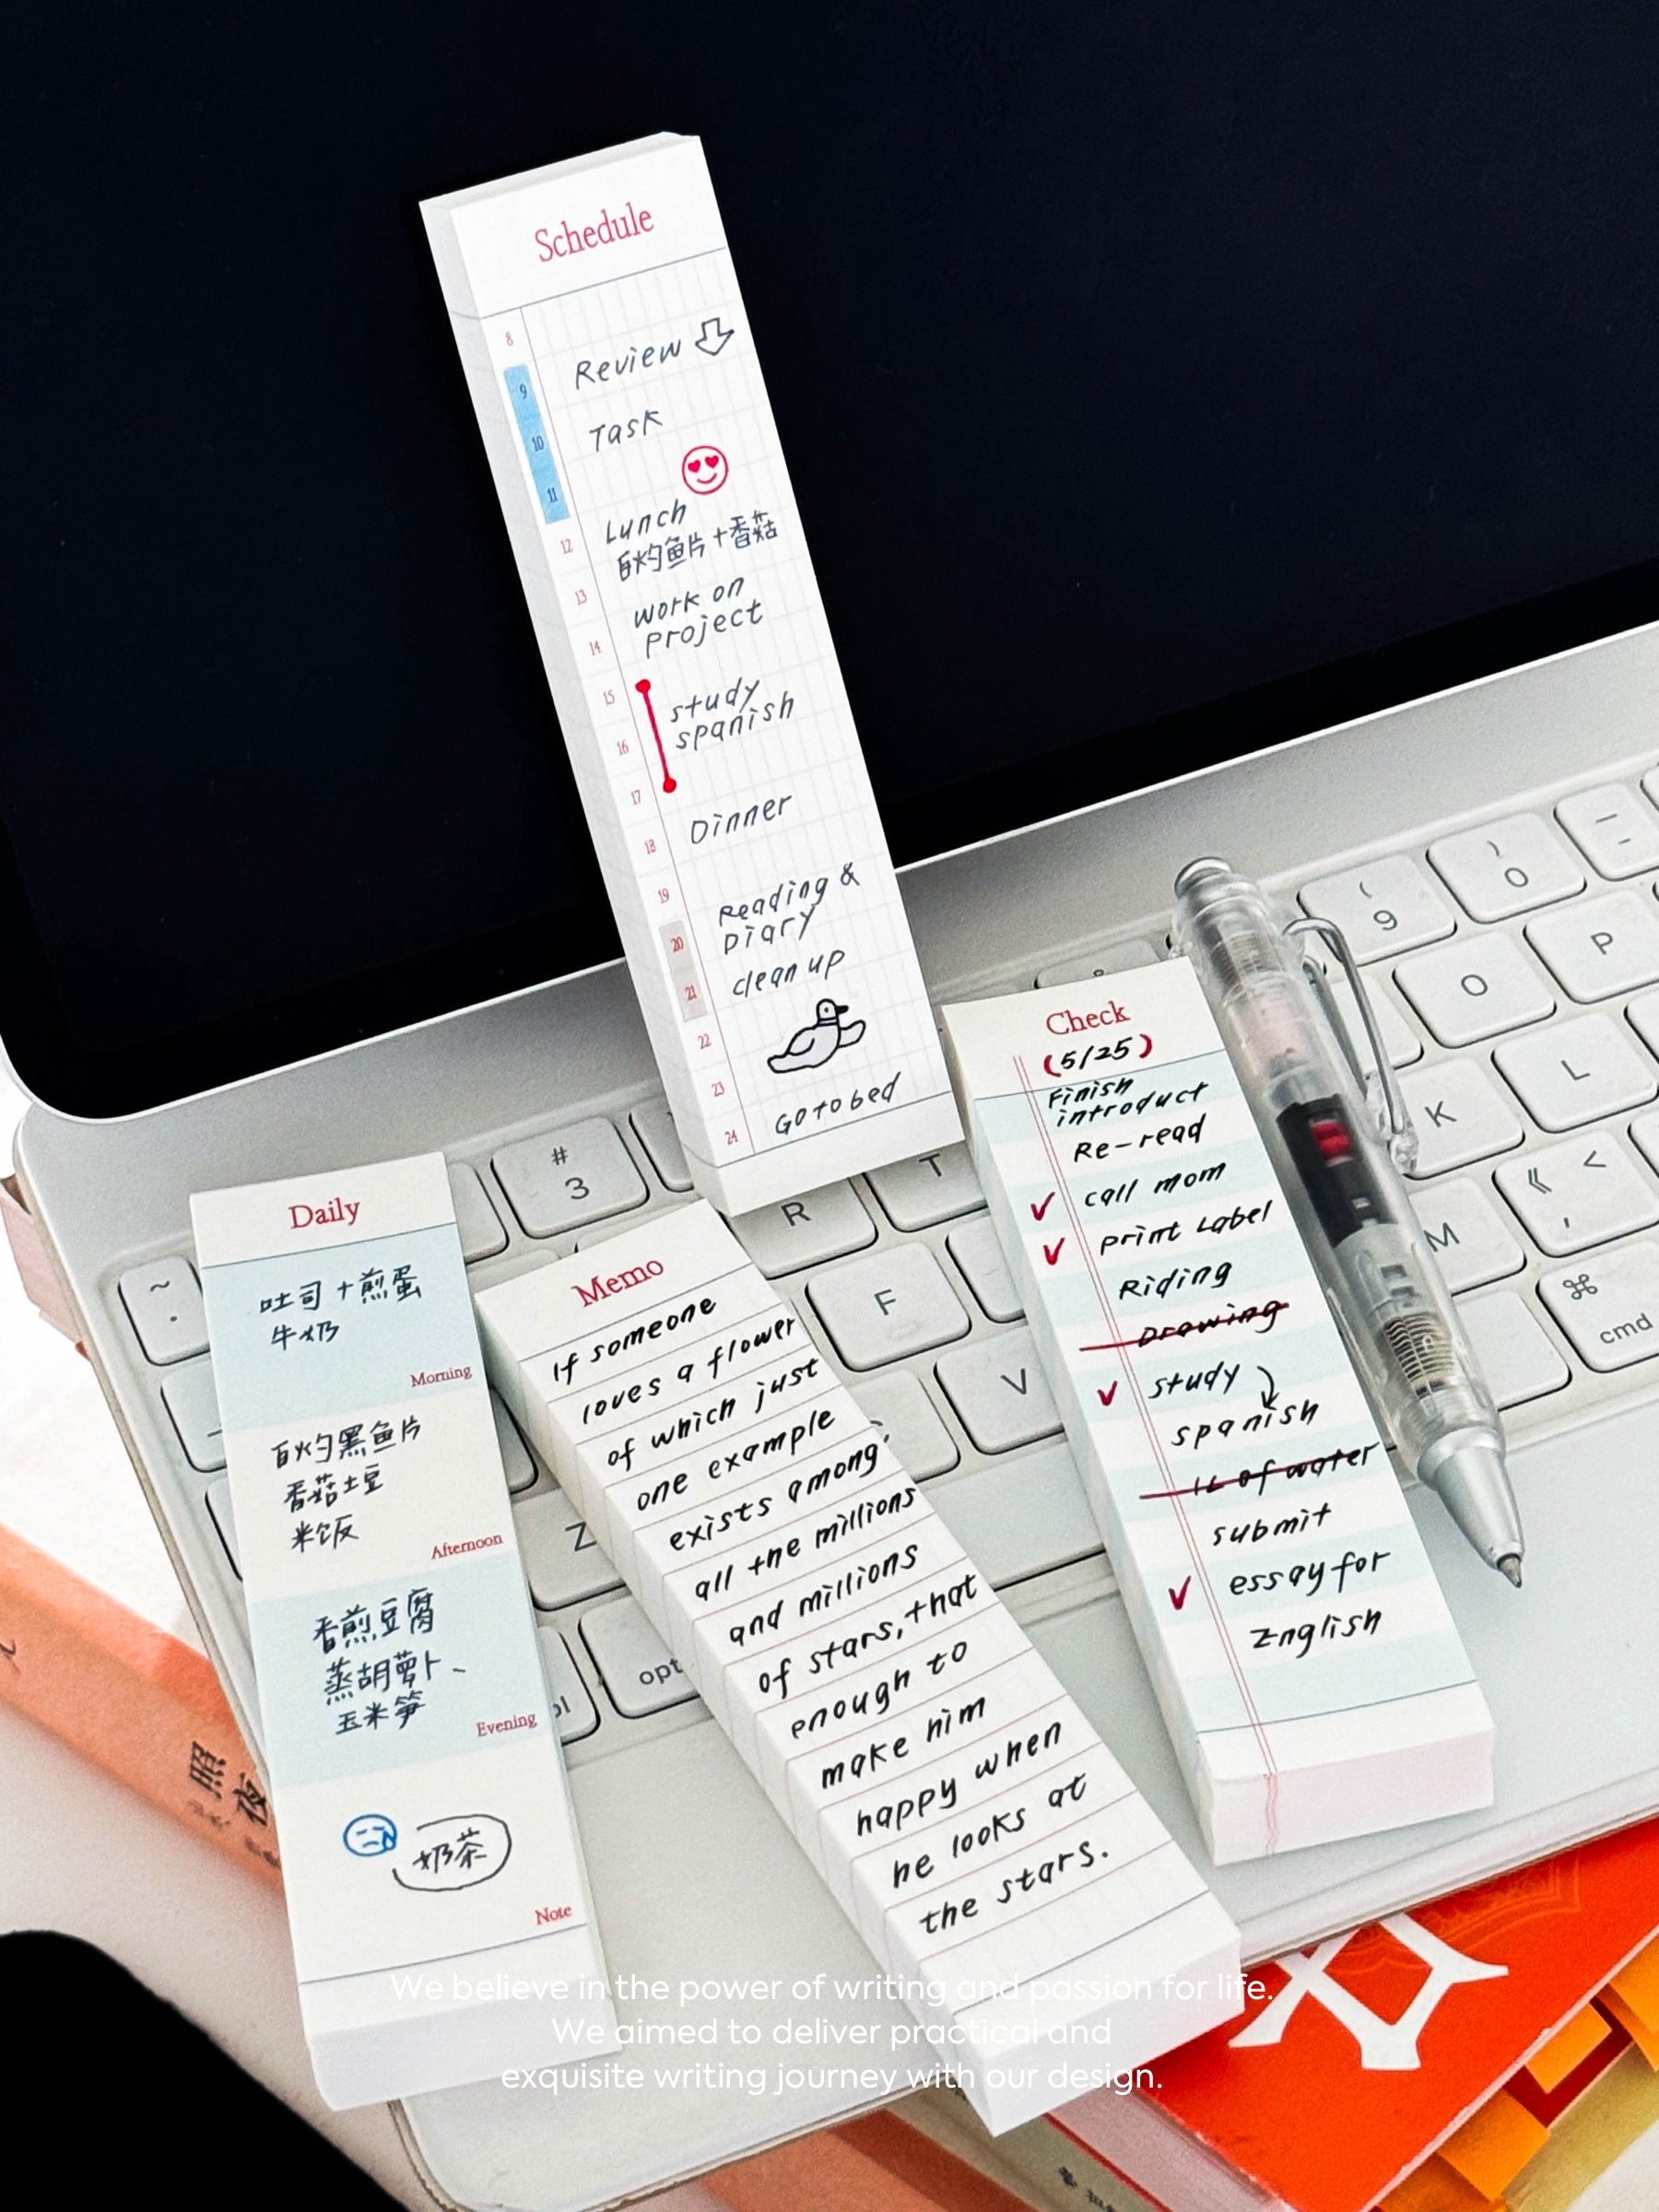 Schedule
8
Review
9
Task
10
11
Lunch
12
白灼鱼片+香菇
13
work on
project
14
15
study
spanish
16
17
Dinner
18
19
Reading &
Diary
20
clean up
21
22
23
Go to bed
24
Check
(5/25)
Finish
introduct
Re-read
call mom
print Label
Riding
Drawing
study
spanish
1L of water
submit
essay for
English
Daily
吐司+煎蛋
牛奶
Morning
白灼黑鱼片
香菇土豆
米饭
Afternoon
香煎豆腐
蒸胡萝卜、
玉米笋
Evening
奶茶
Note
Memo
If someone
loves a flower
of which just
one example
exists among
all the millions
and millions
of stars, that
enough to
make him
happy when
he looks at
the stars.
( 9
) 0
O
P
K
L
M
« <
,
⌘
cmd
# 3
R
T
F
V
Z
~
opt
照
夜
We believe in the power of writing and passion for life.
We aimed to deliver practical and
exquisite writing journey with our design.